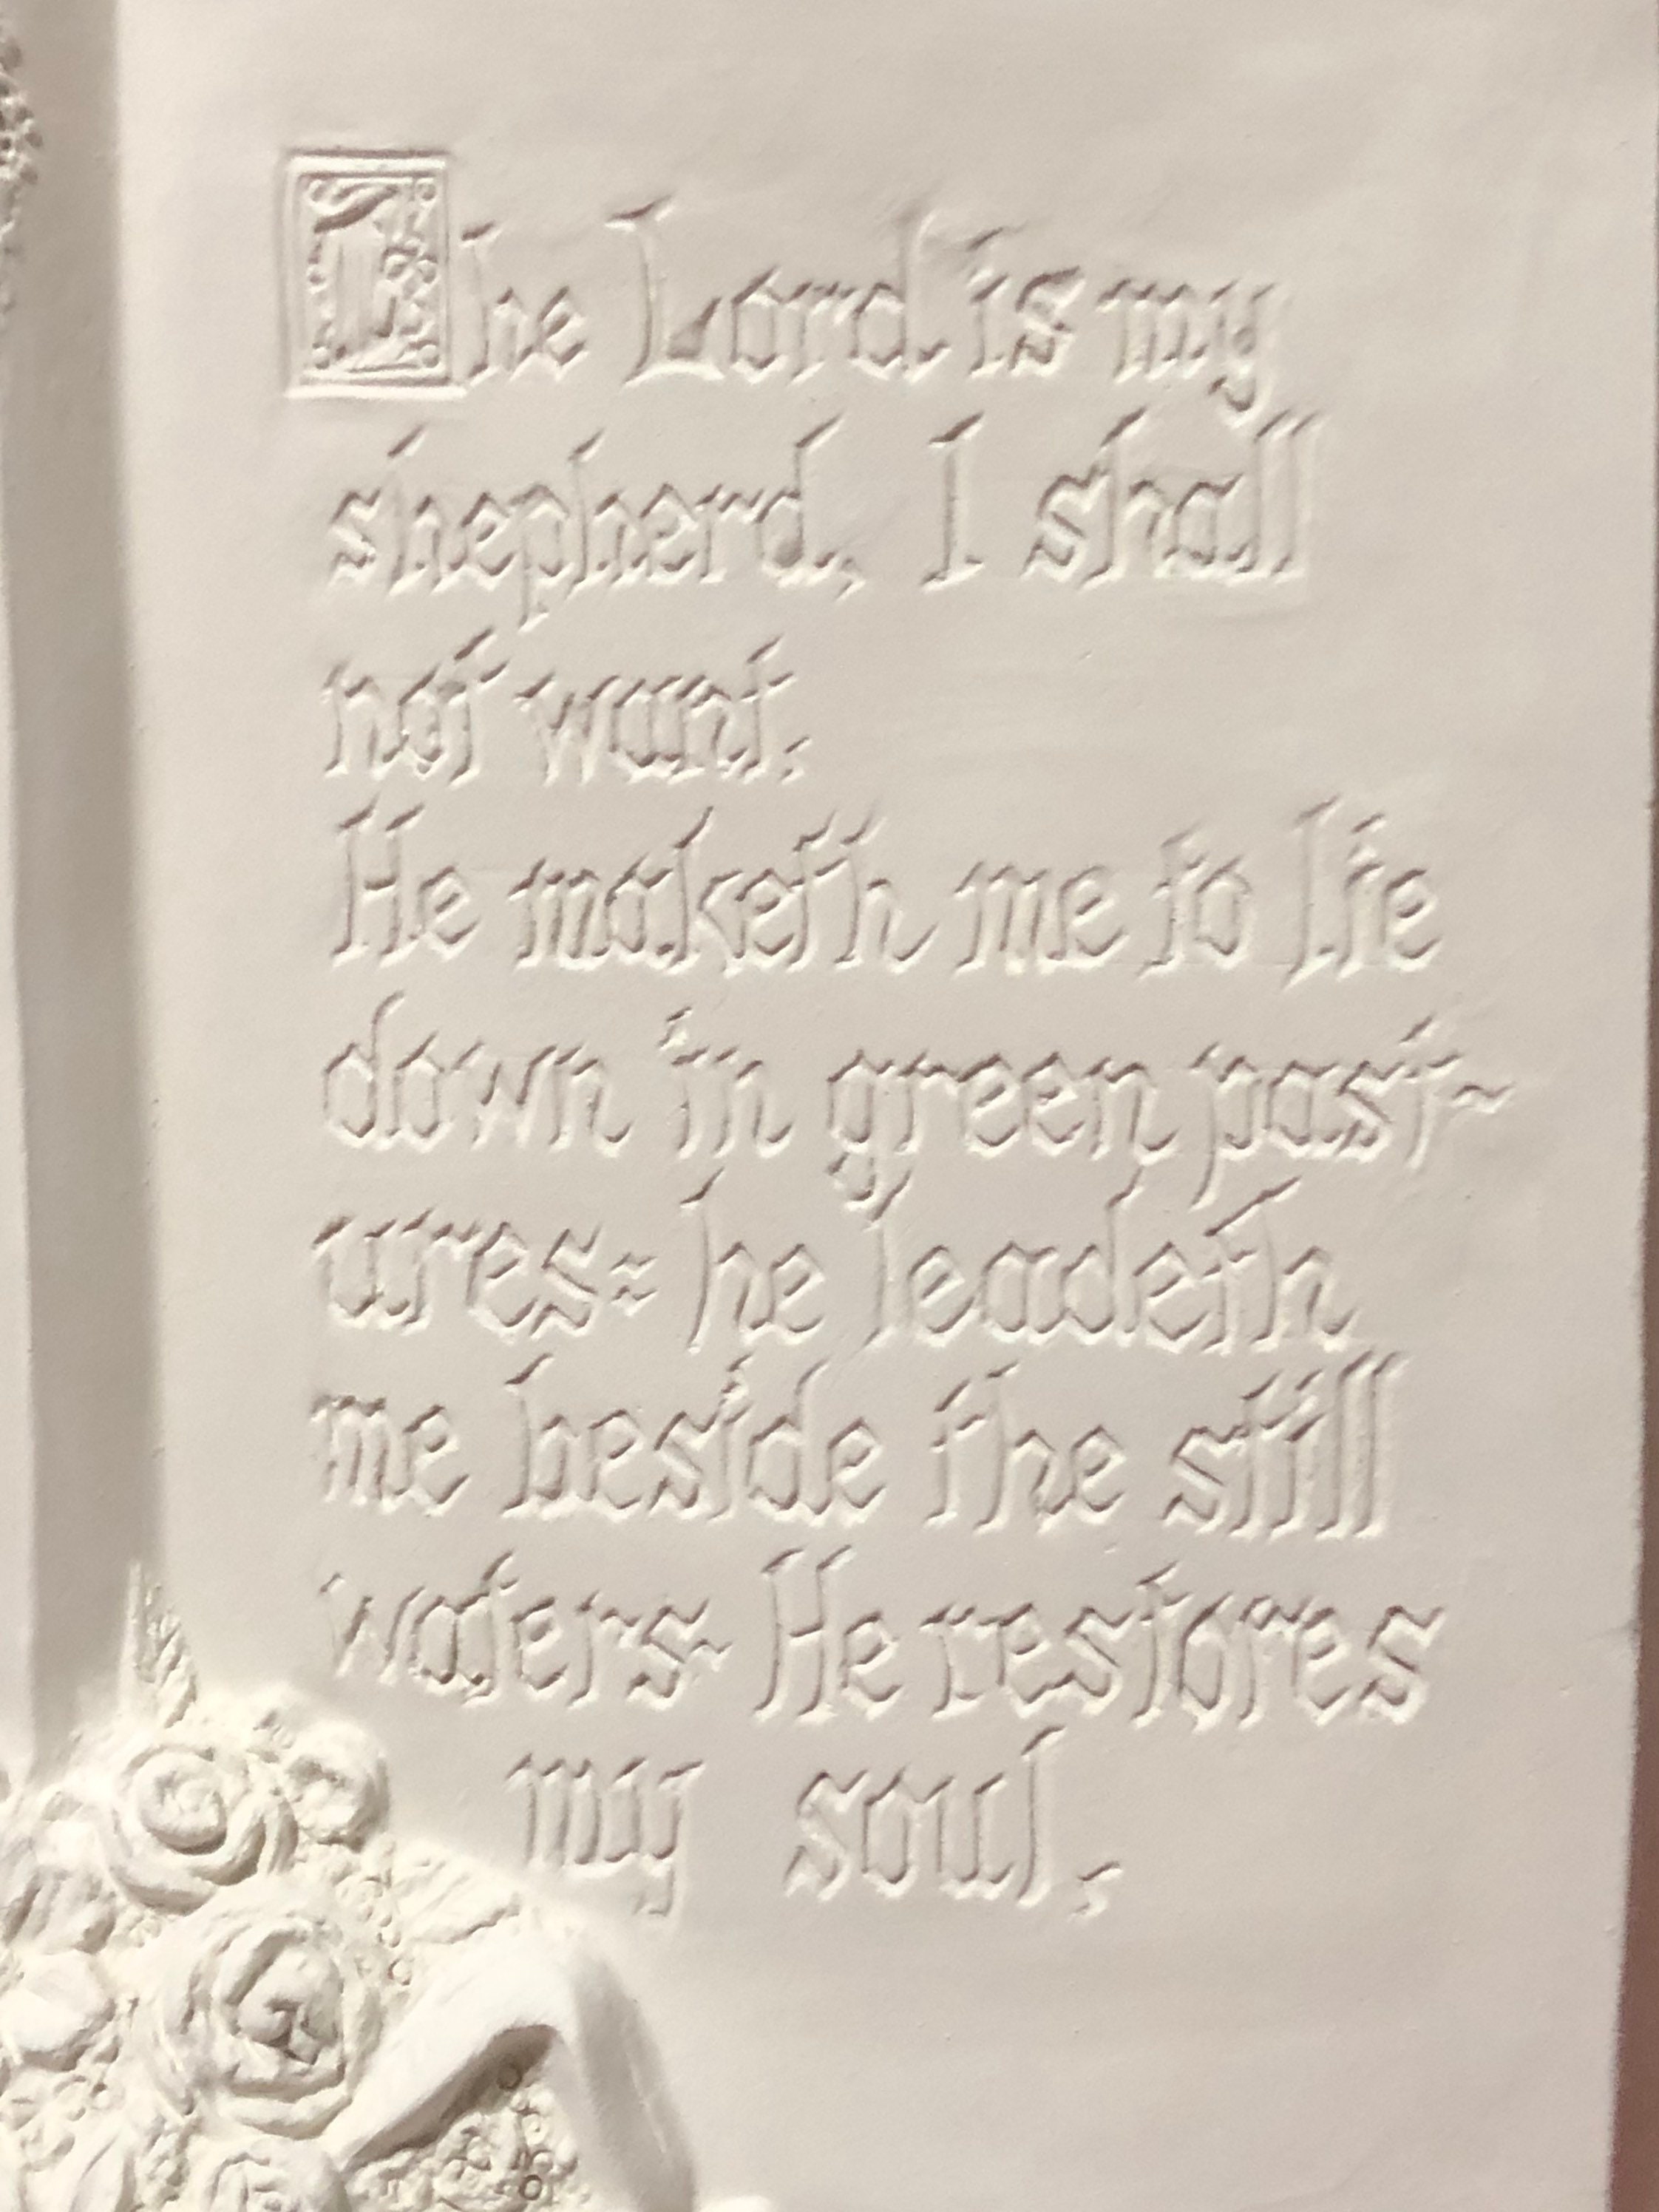 The Lord is my
shepherd, I shall
not want.
He maketh me to lie
down in green past-
ures- he leadeth
me beside the still
waters- He restores
my soul,